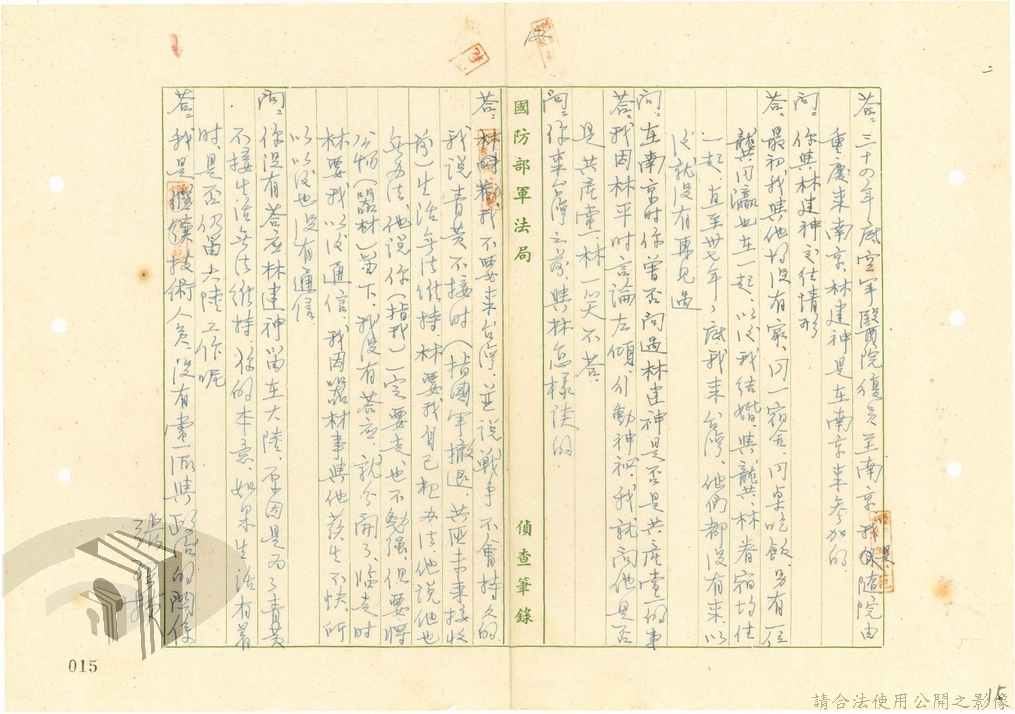 二
答：三十四年底空軍醫院復員至南京我是隨院由
重慶來南京，林建神是在南京來參加的
問：你與林建神之往情形
答：最初我與他均沒有家，同一宿舍，同桌吃飯，另有一位
龔同瀛也在一起，以後我結婚，與龔、林眷宿均住
一起，直至卅七年底我來台灣，他們都沒有來，以
後就沒有再見過
問：在南京時你曾否問過林建神是否是共產黨的事
答：我因林平時言論左傾行動神秘，我就問他是否
是共產黨，林一笑不答，
問：你來台灣之前與林怎樣談的
國防部軍法局
偵查筆錄
答：林我不要來台灣，並說戰爭不會持久的
我說青黃不接時（指國軍撤退，共匪未來接收
前）生活無法維持，林要我自己想办法，他說他也
無办法，他說你（指我）一定要走，也不勉强，但要將
公物（器材）留下，我沒有答應，就分開了，臨走時
林要我以後通信，我因器材事與他發生不快，所
以以後也沒有通信
問：你沒有答應林建神留在大陸，原因是為了青黃
不接生活無法維持，你的本意，如果生活有着
時，是否仍留大陸工作呢
答：我是技術人員，沒有黨派與政治的關係
015
15
請合法使用公開之影像